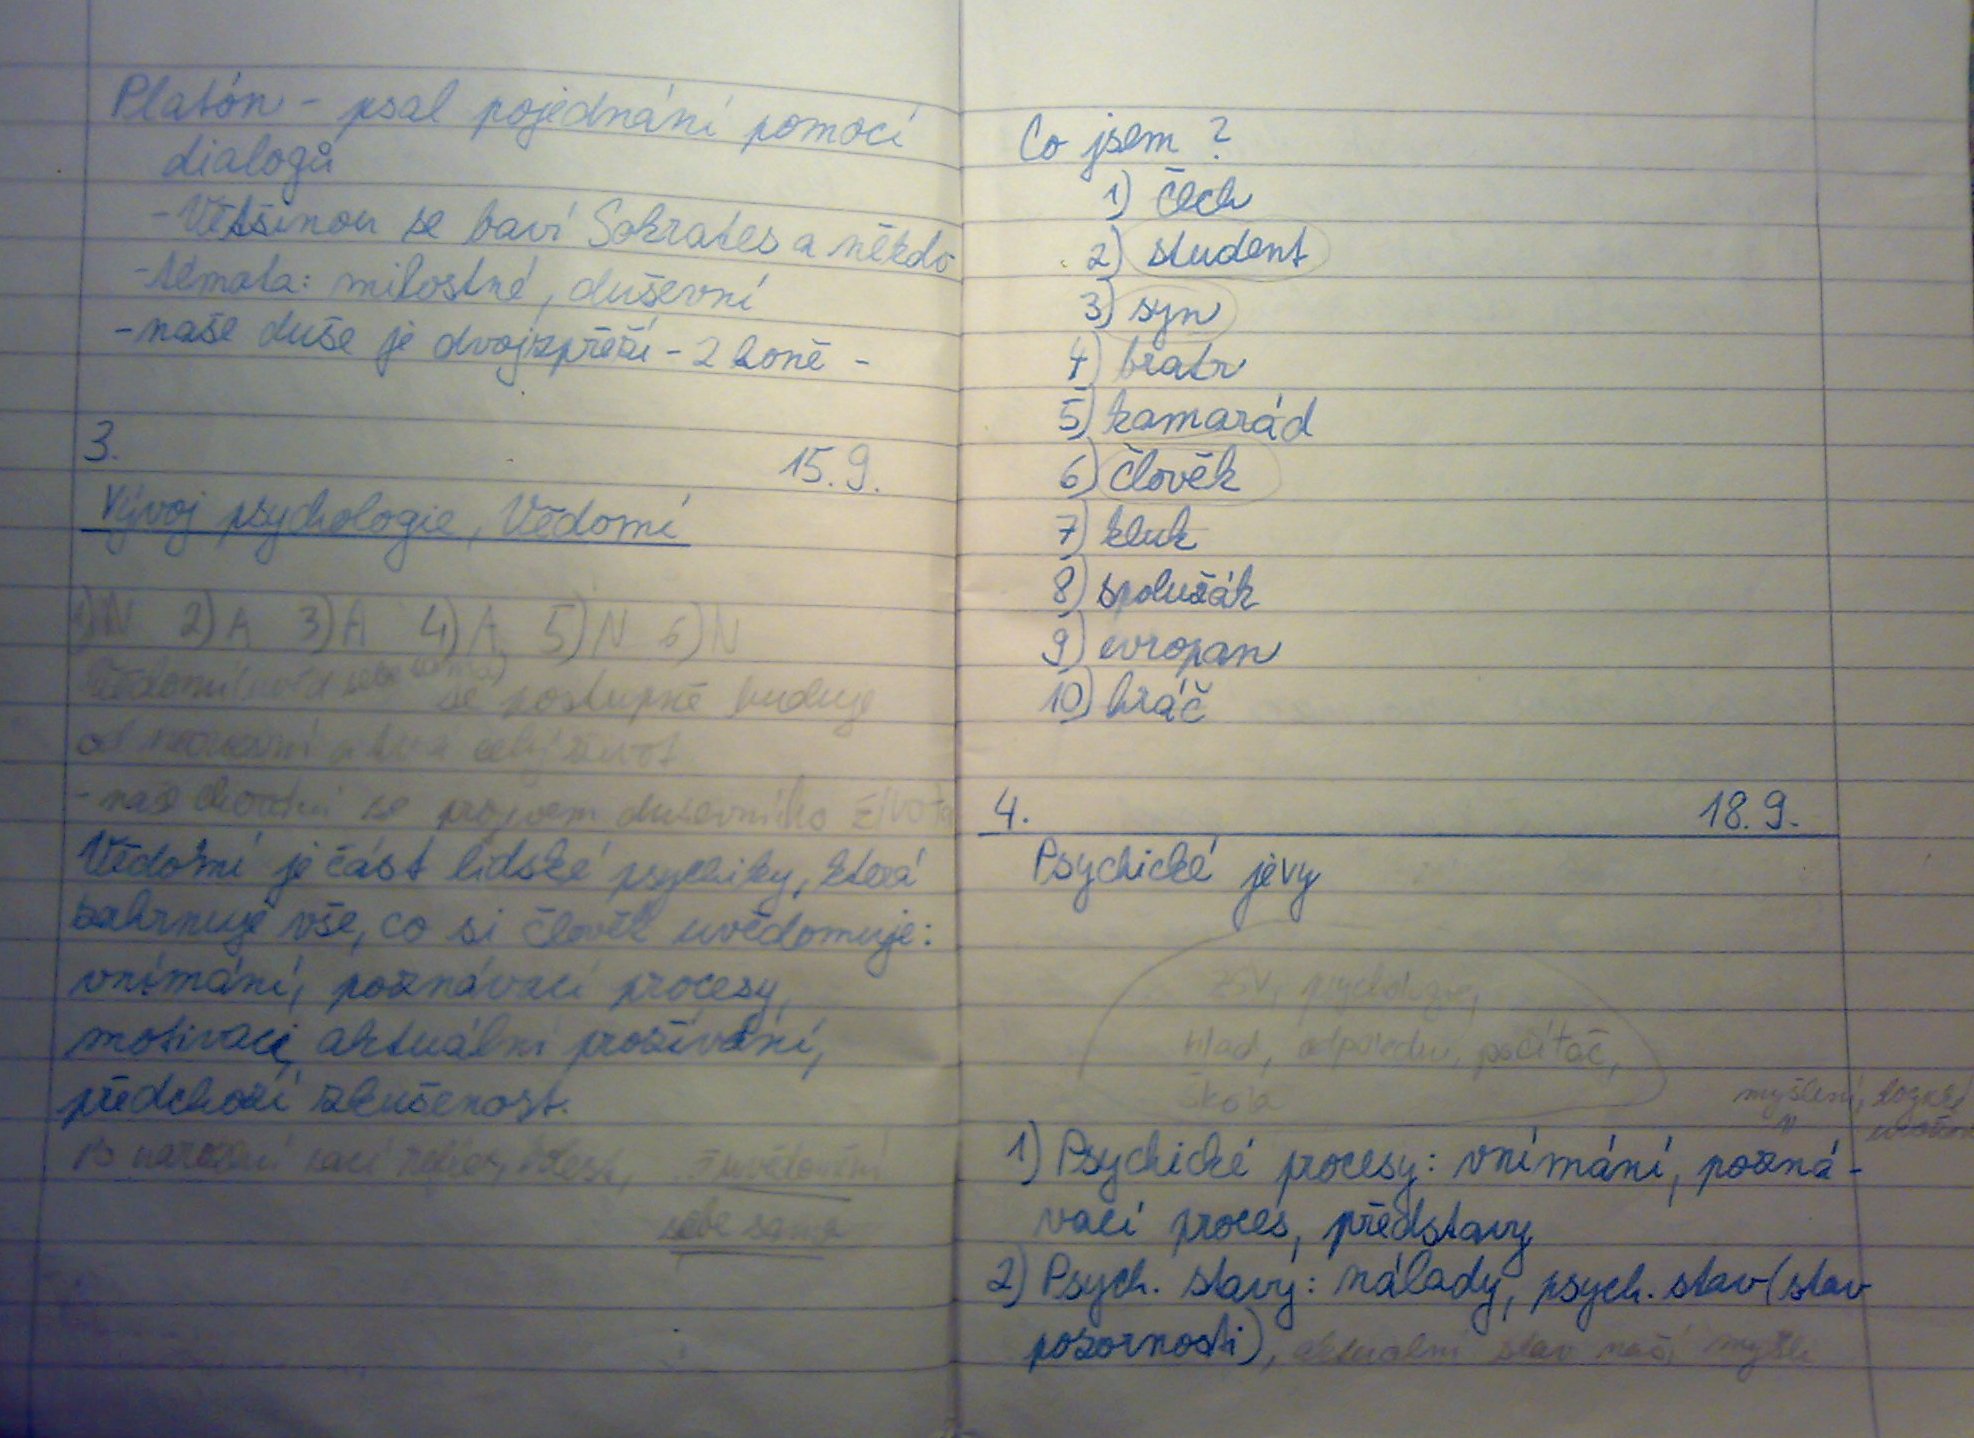 Platón - psal pojednání pomocí
dialogů
- Většinou se baví Sokrates a někdo
- témata: milostné, duševní
- naše duše je dvojzpřeží - 2 koně -
3. 15.9.
Vývoj psychologie, Vědomí
1) N 2) A 3) A 4) A 5) N 6) N
se postupně buduje
od narození celý život.
- naše chování se projevem duševního života
Vědomí je část lidské psychiky, která
zahrnuje vše, co si člověk uvědomuje:
vnímání, poznávací procesy,
motivaci, aktuální prožívání,
předchozí zkušenost.
po narození sací reflex, bolest, zuvědomění
sebe sama
Co jsem ?
1) čech
2) student
3) syn
4) bratr
5) kamarád
6) člověk
7) kluk
8) spolužák
9) evropan
10) hráč
4. 18.9.
Psychické jevy
ZSV, psychologie,
hlad, odpoledne, počítač,
škola
myšlení,
1) Psychické procesy: vnímání, pozná-
vací proces, představy
2) Psych. stavy: nálady, psych. stav (stav
pozornosti), aktuální stav naší mysli